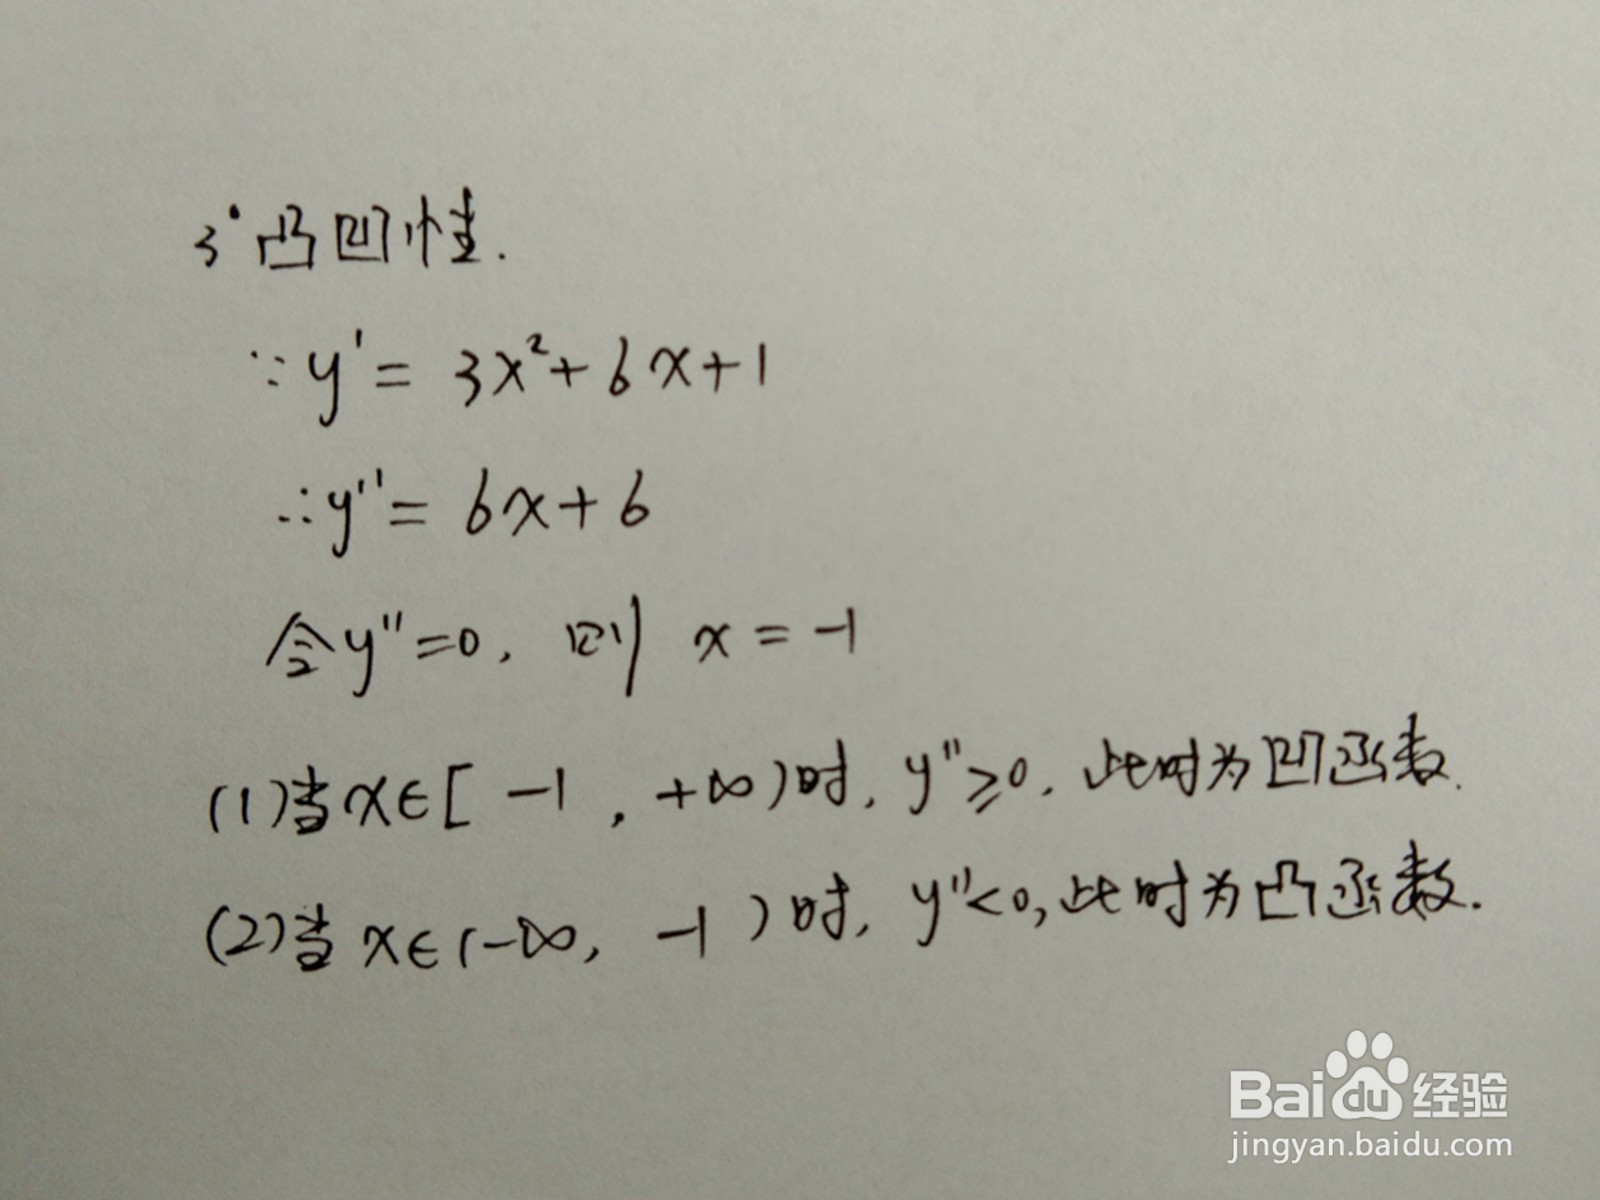 3° 凸凹性.
∵y' = 3x²+6x+1
∴y'' = 6x+6
令y''=0, 则 x = -1
(1)当x∈[ -1 , +∞)时, y''≥0, 此时为凹函数.
(2)当x∈(-∞, -1 )时, y''<0,此时为凸函数.
Baidu经验
jingyan.baidu.com